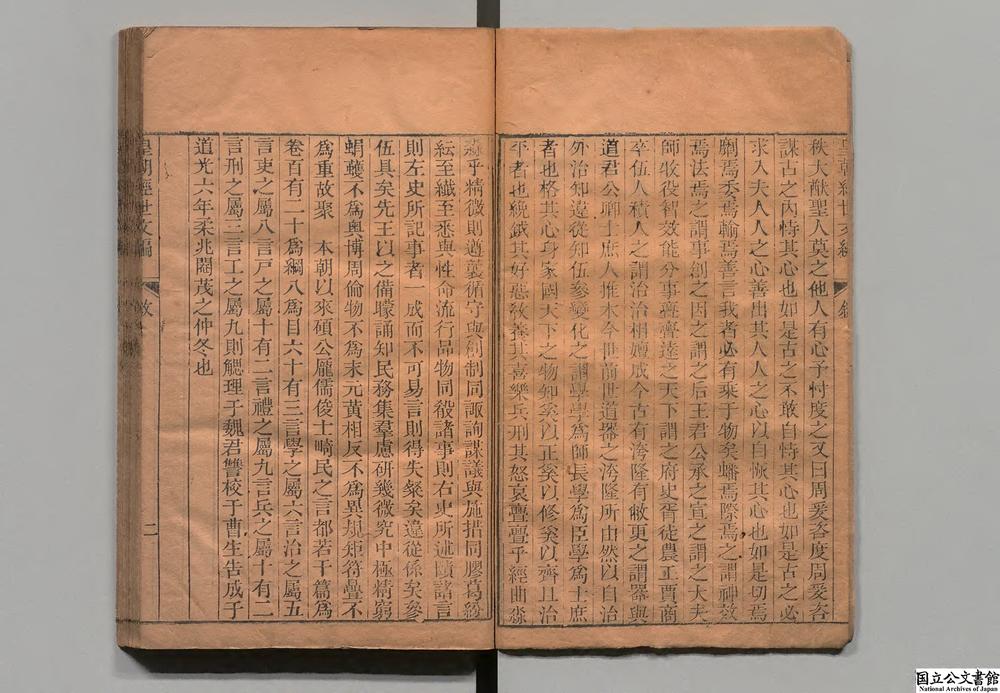 皇朝經世文編 敘
秩大猷聖人莫之他人有心予忖度之又曰周爰咨度周爰咨
謀古之內恃其心也如是古之不敢自恃其心也如是古之必
求入夫人人之心善出其人人之心以自恢其心也如是切焉
劘焉委焉輸焉善言我者必有乘于物矣蟠焉際焉之謂神效
焉法焉之謂事創之因之謂之后王君公承之宣之謂之大夫
師牧役智效能分事亹亹達之天下謂之府史胥徒農工賈商
卒伍人積人之謂治治相嬗成今古有洿隆有敝更之謂器與
道君公卿士庶人推本今世前世道器之洿隆所由然以自治
外治知違從知伍參變化之謂學學爲師長學爲臣學爲士庶
者也格其心身家國天下之物知奚以正奚以修奚以齊且治
平者也其好惡敎養其喜樂兵刑其怒哀亹亹乎經曲淼
淼乎精微則遒循守與創制同諏詢謀議與施措同膠葛紛
紜至纖至悉與性命流行品物同殽諸事則右史所述賾諸言
則左史所記事者一成而不可易言則得失粲矣違從係矣參
伍具矣先王以之備矇誦知民務集羣慮研幾微究中極精窮
蜎蠖不爲奧博周倫物不爲末元黃相反不爲異規矩符疊不
爲重故聚 本朝以來碩公龐儒俊士畸民之言都若干篇爲
卷百有二十爲綱八爲目六十有三言學之屬六言治之屬五
言吏之屬八言戸之屬十有二言禮之屬九言兵之屬十有二
言刑之屬三言工之屬九則鰓理于魏君讐校于曹生告成于
道光六年柔兆閹茂之仲冬也
皇朝經世文編 敘 二
国立公文書館
National Archives of Japan